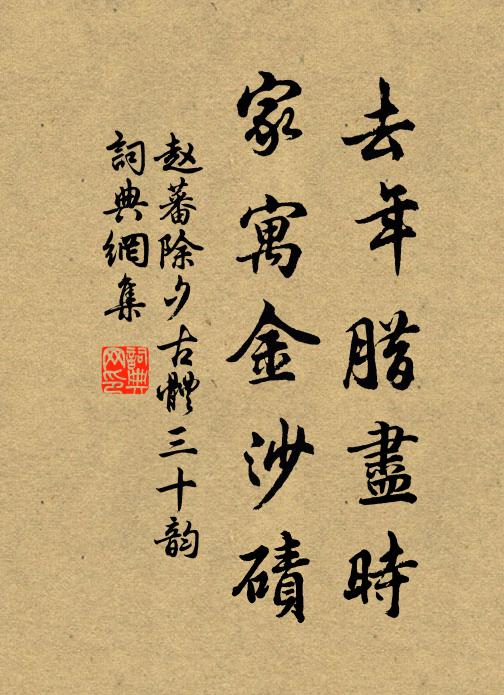 去年腊盡時
家寓金沙磧
赵蕃除夕古體三十韵
詞典網集
詞典网印